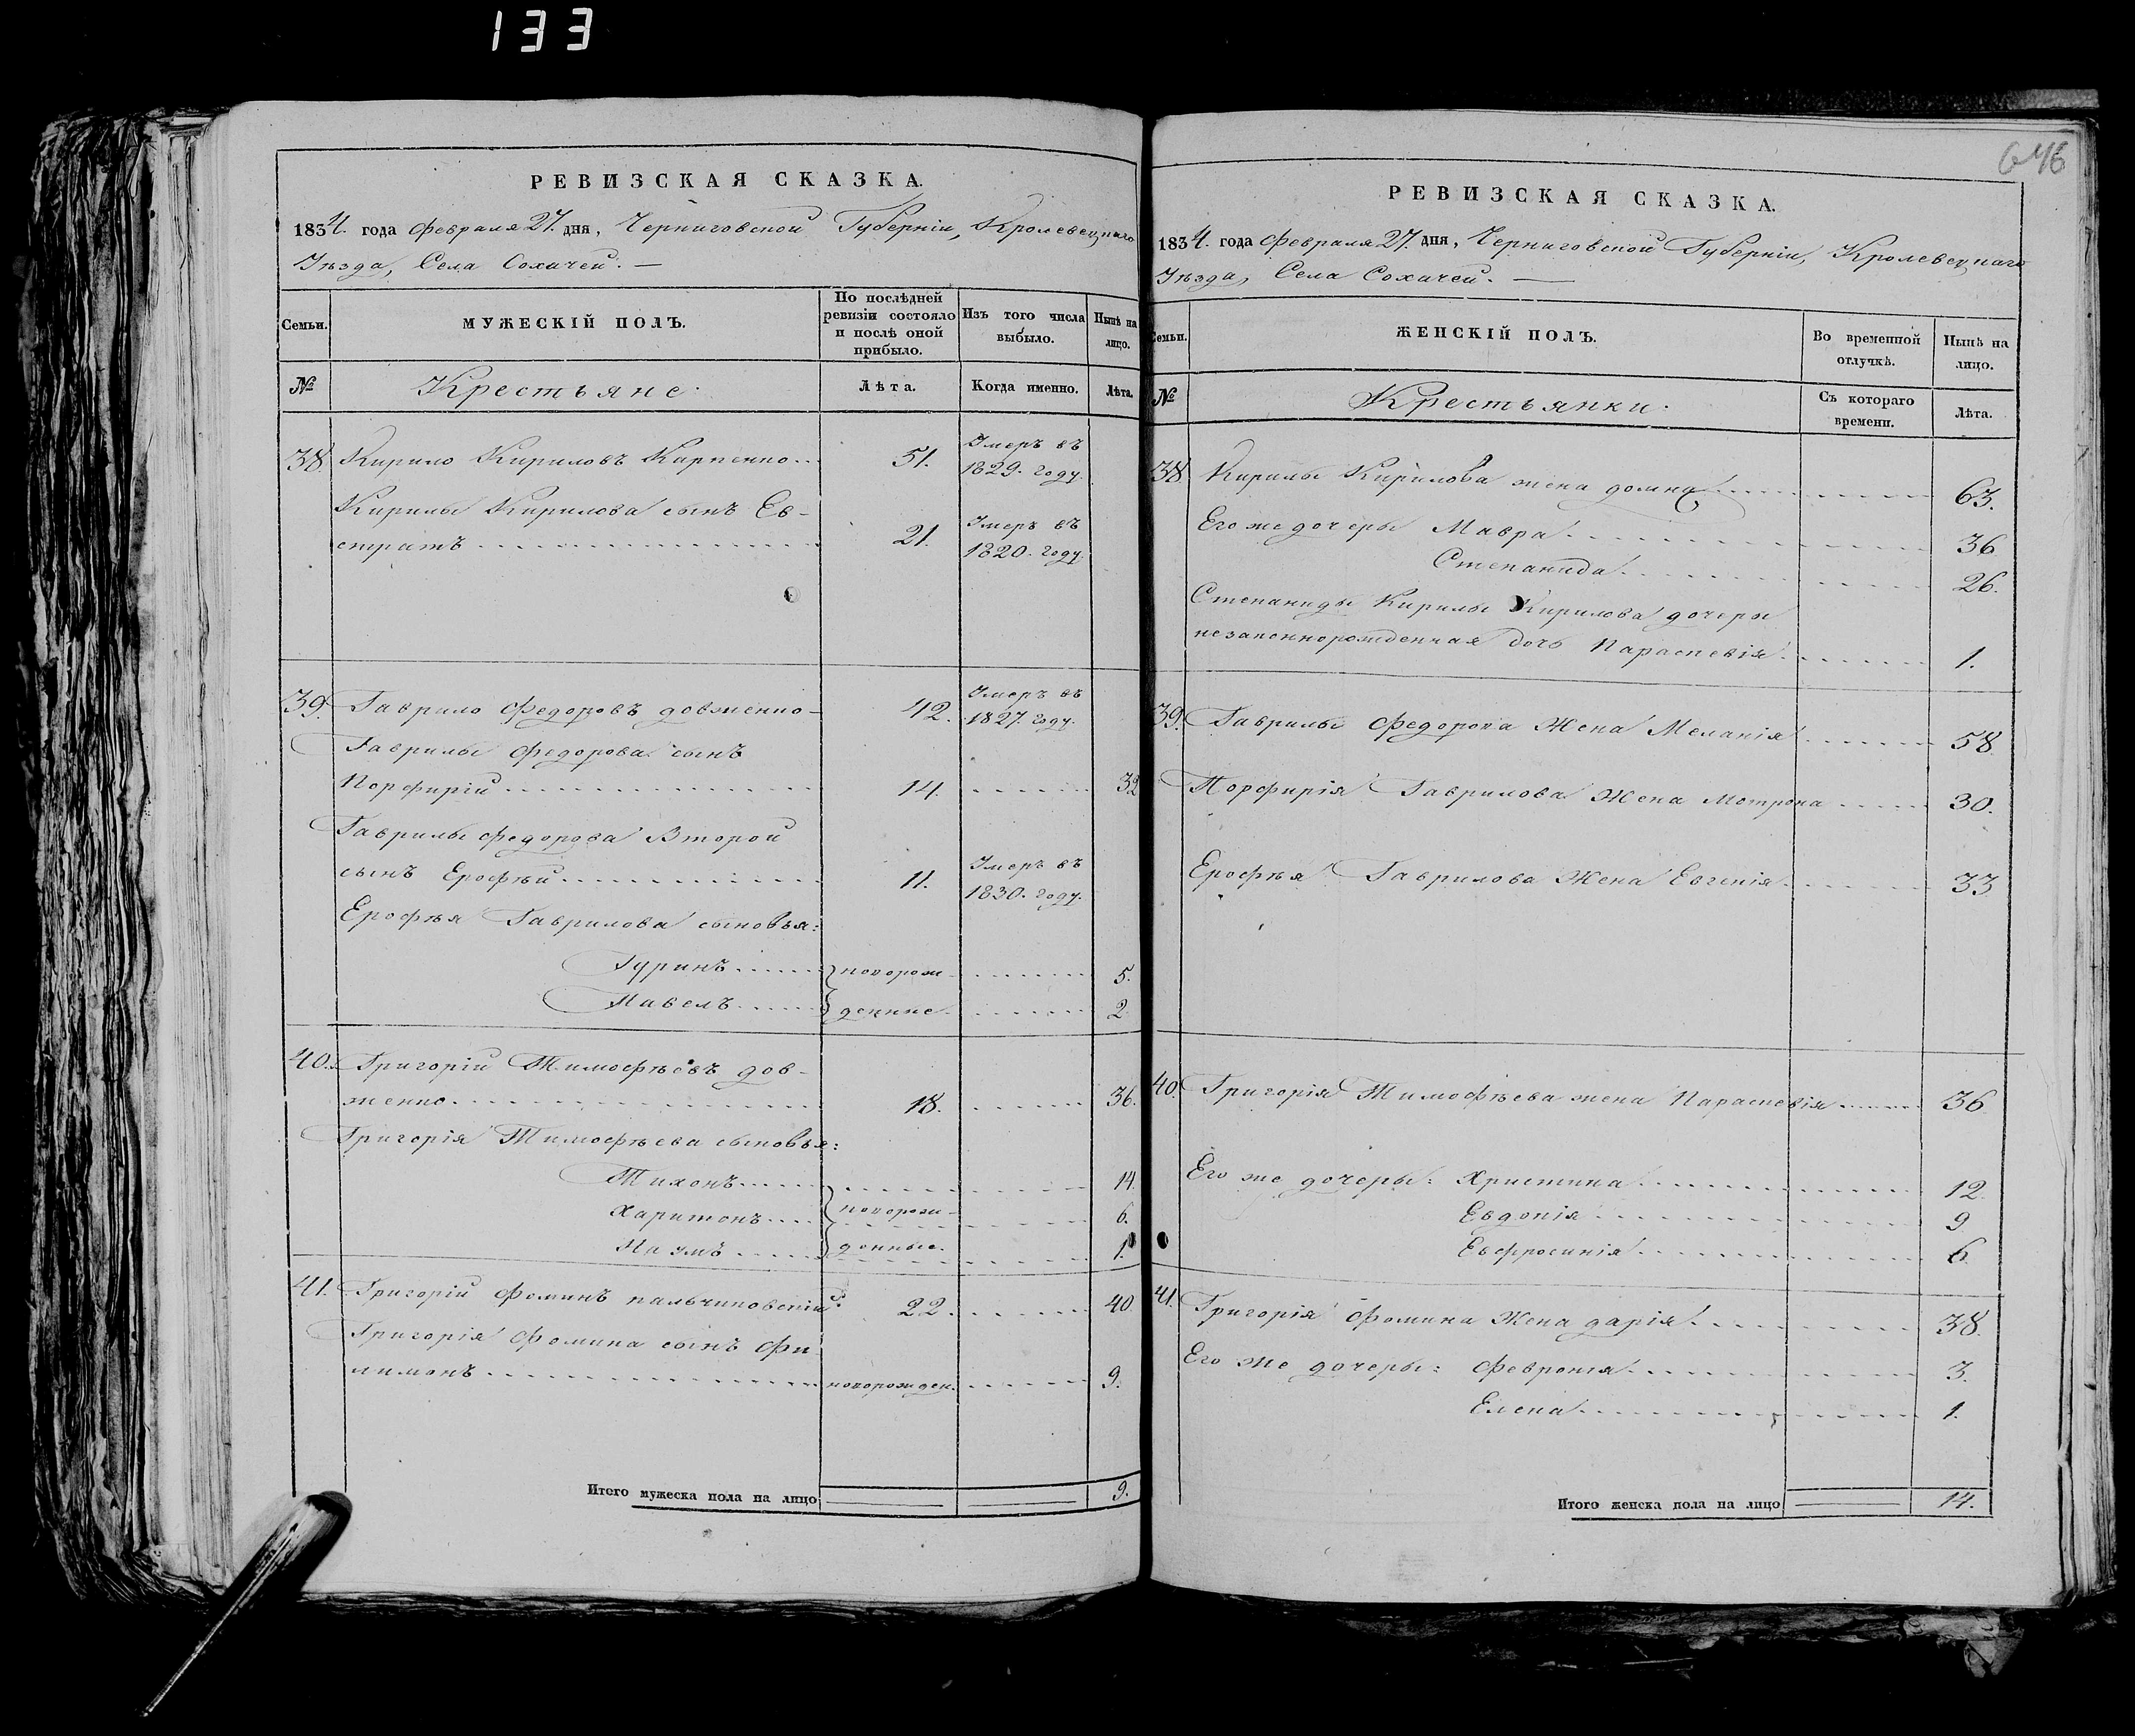 133
646
РЕВИЗСКАЯ СКАЗКА.
1834. года Февраля 27. дня, Черниговской Губерніи, Кролевецкаго
Уѣзда, Села Сохачей. —
Семьи.
МУЖЕСКІЙ ПОЛЪ.
По послѣдней
ревизіи состояло
и послѣ оной
прибыло.
Изъ того числа
выбыло.
Нынѣ на
лицо.
№ Крестьяне. Лѣта. Когда именно. Лѣта.
38. Кирило Кириловъ Карпенко 51. Умеръ въ
1829. году.
Кирилы Кирилова сынъ Ев-
стратъ 21. Умеръ въ
1820. году.
39. Гаврило Федоровъ Довженко 42. Умеръ въ
1827. году.
Гаврилы Федорова сынъ
Порфирій 14. 32
Гаврилы Федорова Второй
сынъ Ерофѣй 11. Умеръ въ
1830. году.
Ерофѣя Гаврилова сыновья:
Гуринъ новорож- 5.
Павелъ денные 2.
40. Григорій Тимофѣевъ Дов-
женко 18. 36.
Григорія Тимофѣева сыновья:
Тихонъ 14.
Харитонъ новорож- 6.
Наумъ денные. 1.
41. Григорій Фоминъ Пальчиковскій 22. 40.
Григорія Фомина сынъ Фи
лимонъ новорожден. 9.
Итого мужеска пола на лицо 9.
РЕВИЗСКАЯ СКАЗКА.
1834. года Февраля 27. дня, Черниговской Губерніи, Кролевецкаго
Уѣзда, Села Сохачей. —
Семьи.
ЖЕНСКІЙ ПОЛЪ.
Во временной
отлучкѣ.
Нынѣ на
лицо.
№ Крестьянки. Съ котораго
времени. Лѣта.
38. Кирилы Кирилова жена Домна 63.
Его же дочери Мавра 36
Степанида 26.
Степаниды Кирилы Кирилова дочери
незаконнорожденная дочь Параскевія 1.
39. Гаврилы Федорова Жена Меланія 58.
Порфирія Гаврилова Жена Мотрона 30.
Ерофѣя Гаврилова Жена Евгенія 33
40. Григорія Тимофѣева жена Параскевія 36
Его же дочери: Христина 12.
Евдокія 9
Евфросинія 6.
41. Григорія Фомина Жена Дарія 38.
Его же дочери: Февронія 3.
Елена 1.
Итого женска пола на лицо 14.